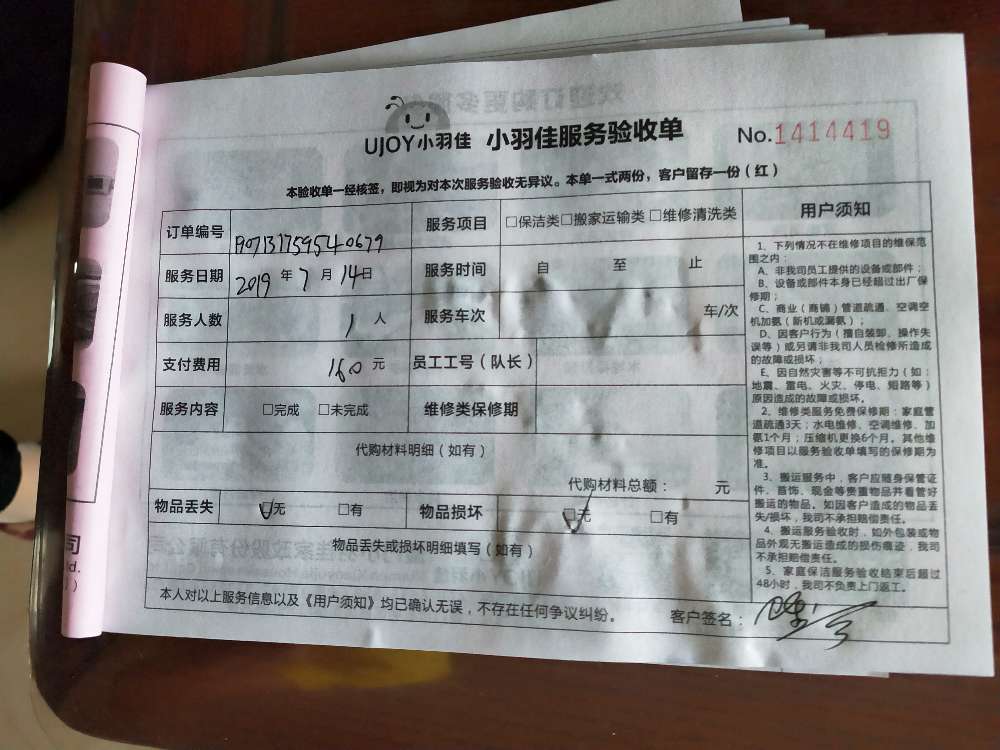 UJOY小羽佳 小羽佳服务验收单 No.1414419
本验收单一经核签，即视为对本次服务验收无异议。本单一式两份，客户留存一份（红）
订单编号 190713175954-0679 服务项目 □保洁类□搬家运输类 □维修清洗类
服务日期 2019年7月14日 服务时间 自 至 止
服务人数 1人 服务车次 车/次
支付费用 160元 员工工号（队长）
服务内容 □完成 □未完成 维修类保修期
代购材料明细（如有）
代购材料总额： 元
物品丢失 ☑无 □有 物品损坏 ☑无 □有
物品丢失或损坏明细填写（如有）
本人对以上服务信息以及《用户须知》均已确认无误，不存在任何争议纠纷。 客户签名：
用户须知
1、下列情况不在维修项目的维保范
围之内：
A、非我司员工提供的设备或部件；
B、设备或部件本身已经超过出厂保
修期；
C、商业（商铺）管道疏通、空调空
机加氨（新机或漏氨）；
D、因客户行为（擅自装卸、操作失
误等）或另请非我司人员检修所造成
的故障或损坏；
E、因自然灾害等不可抗拒力（如：
地震、雷电、火灾、停电、短路等）
原因造成的故障或损坏。
2、维修类服务免费保修期：家庭管
道疏通3天；水电维修、空调维修、加
氨1个月；压缩机更换6个月。其他维
修项目以服务验收单填写的保修期为
准。
3、搬运服务中，客户应随身保管证
件、首饰、现金等贵重物品并看管好
搬运的物品。如因客户造成的物品丢
失/损坏，我司不承担赔偿责任。
4、搬运服务验收时，如外包装或物
品外观无搬运造成的损伤痕迹，我司
不承担赔偿责任。
5、家庭保洁服务验收结束后超过
48小时，我司不负责上门返工。
司
d.
)